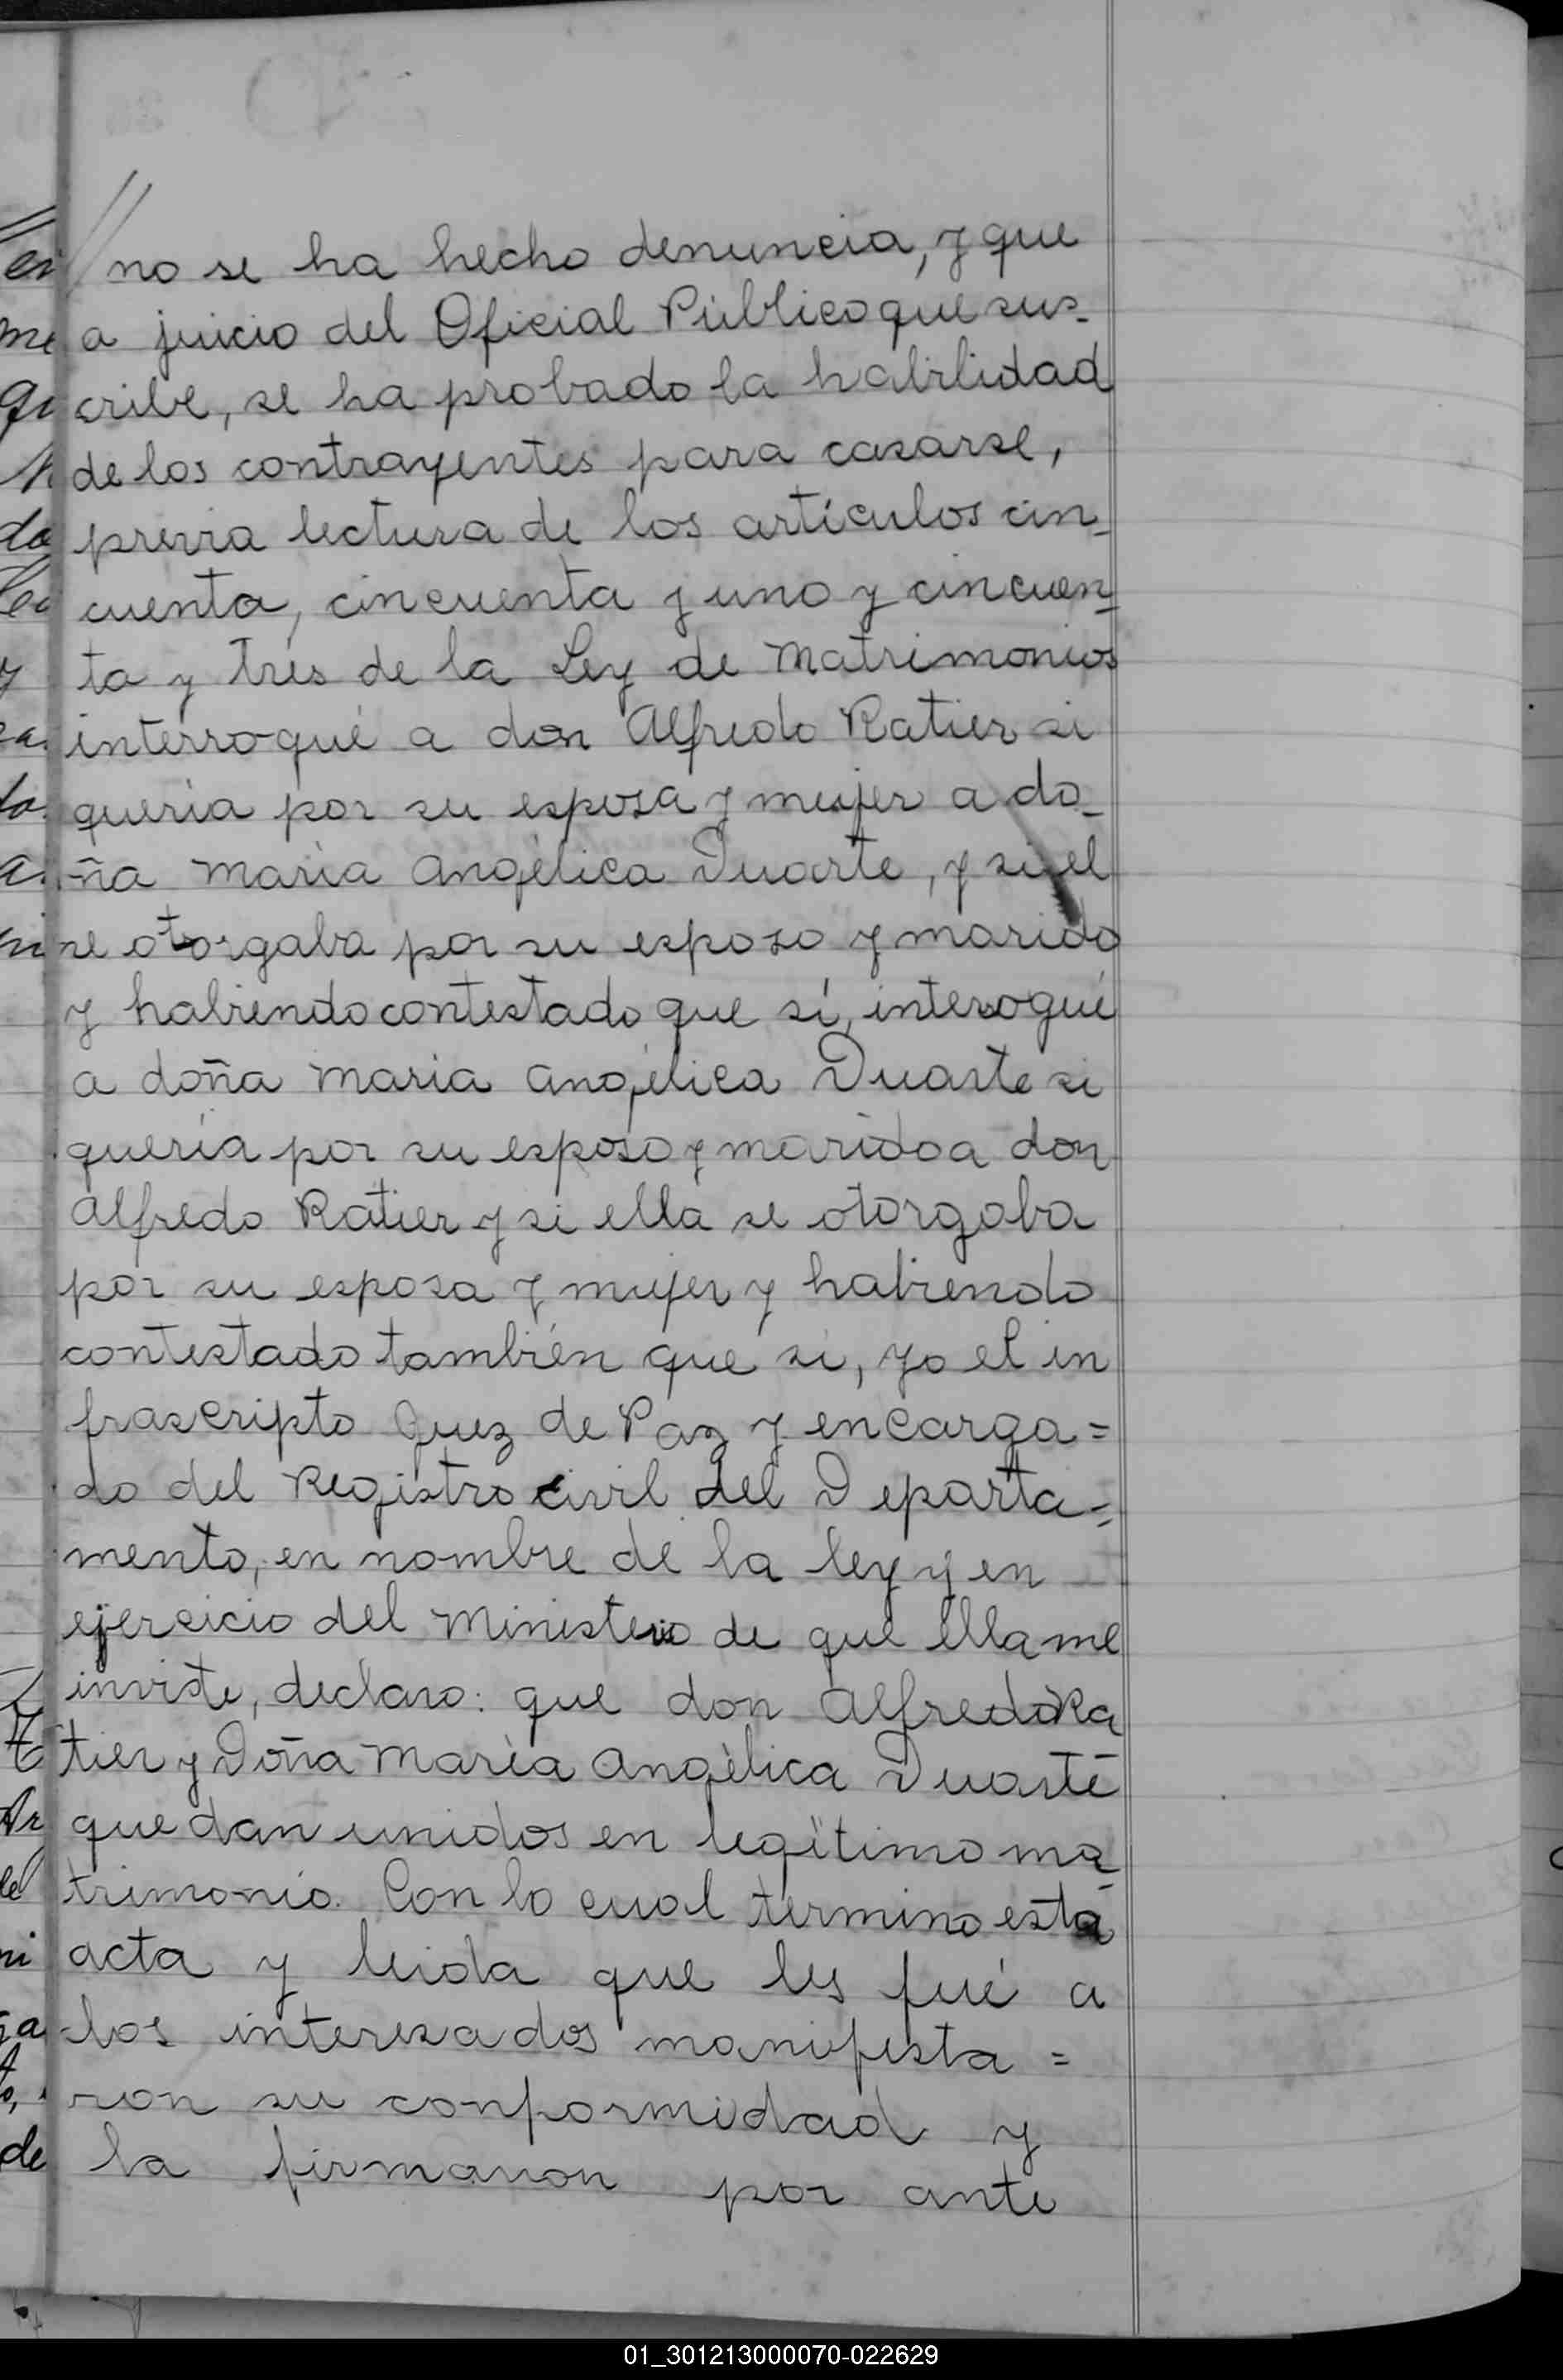 // no se ha hecho denuncia, y que
a juicio del Oficial Público que sus-
cribe, se ha probado la habilidad
de los contrayentes para casarse,
previa lectura de los artículos cin-
cuenta, cincuenta y uno y cincuen-
ta y tres de la Ley de Matrimonios
interrogué a don Alfredo Ratier si
quería por su esposa y mujer a do-
ña María Angélica Duarte, y si el
se otorgaba por su esposo y marido
y habiendo contestado que sí, interogué
a doña Maria Angélica Duarte si
quería por su esposo y marido a don
Alfredo Ratier y si ella se otorgaba
por su esposa y mujer y habiendo
contestado también que si, yo el in
frascripto Juez de Paz y encarga=
do del Registro civil del Departa=
mento, en nombre de la ley y en
ejercicio del Ministerio de que ella me
inviste, declaro: que don Alfredo Ra
tier y Doña María Angélica Duarte
quedan unidos en legítimo ma-
trimonio. Con lo cual termino esta
acta y leida que les fué a
los interesados manifesta=
ron su conformidad y
la firmaron por ante
01_301213000070-022629